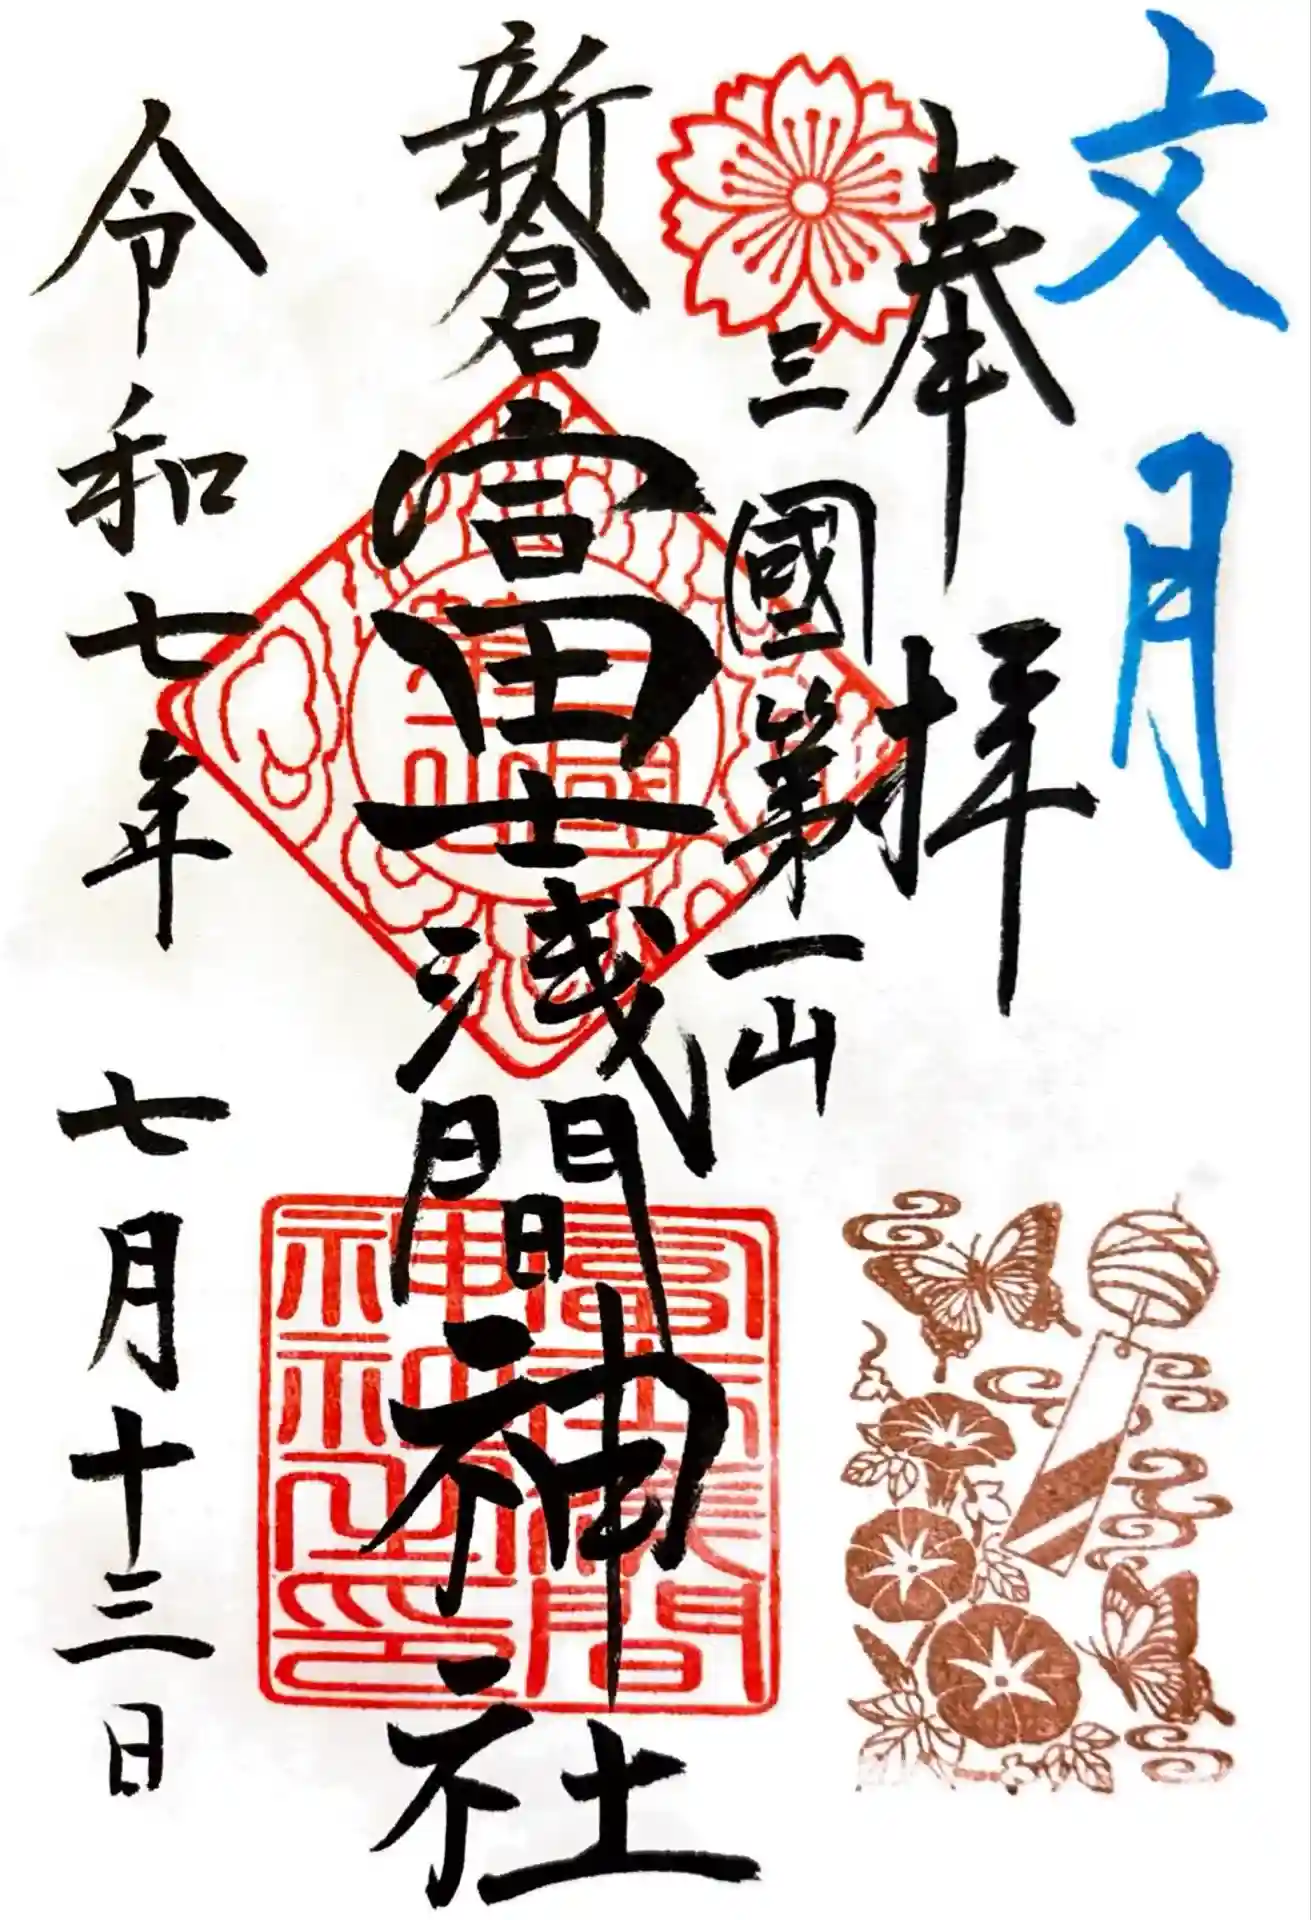 文月
奉拝
三國第一山
新倉富士浅間神社
令和七年 七月十三日
富士浅間
神社之印